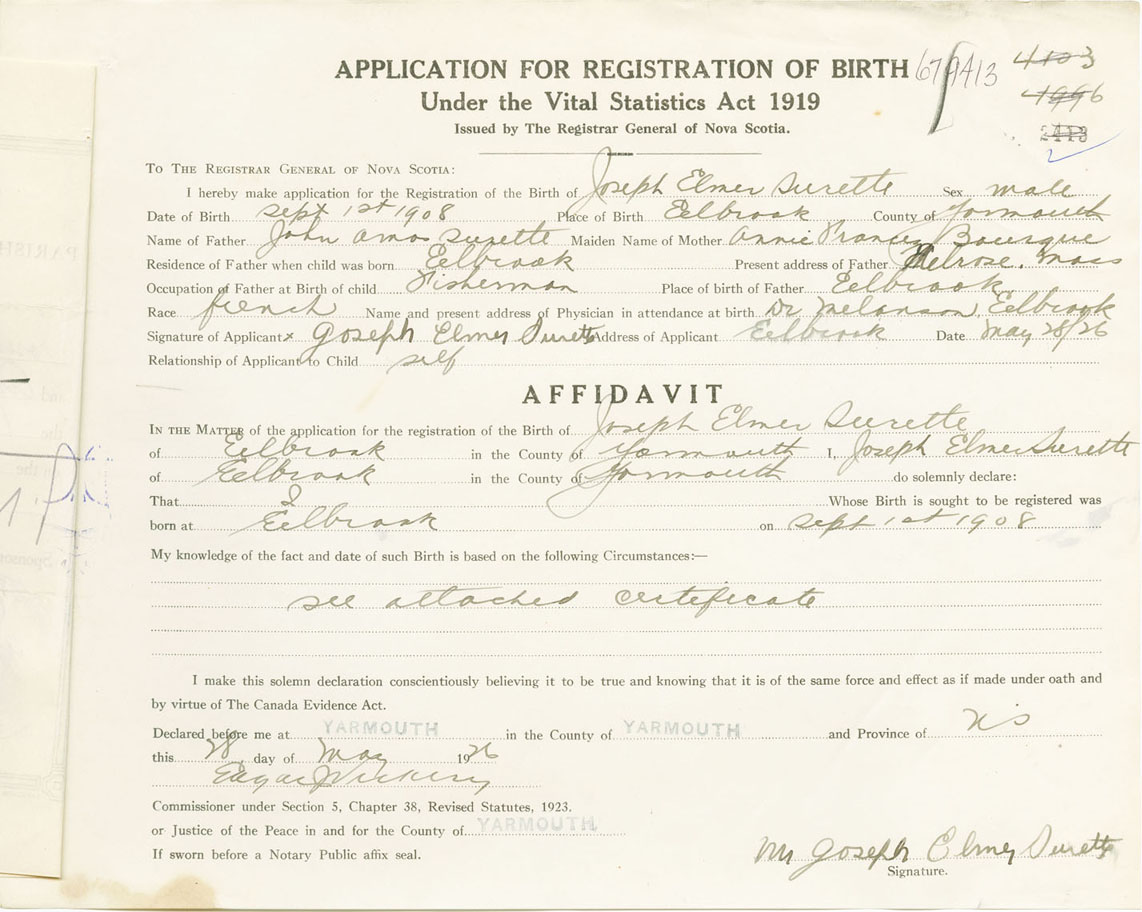 APPLICATION FOR REGISTRATION OF BIRTH 679413 4103
Under the Vital Statistics Act 1919 4996
Issued by The Registrar General of Nova Scotia. 2413
TO THE REGISTRAR GENERAL OF NOVA SCOTIA:
I hereby make application for the Registration of the Birth of Joseph Elmer Surette Sex male
Date of Birth sept 1st 1908 Place of Birth Eelbrook County of Yarmouth
Name of Father John Amos Surette Maiden Name of Mother Annie Bourque
Residence of Father when child was born Eelbrook Present address of Father Melrose. Mass
Occupation of Father at Birth of child Fisherman Place of birth of Father Eelbrook
Race french Name and present address of Physician in attendance at birth Dr Melanson, Eelbrook
Signature of Applicant x Joseph Elmer Surette Address of Applicant Eelbrook Date May 28/26
Relationship of Applicant to Child self
AFFIDAVIT
IN THE MATTER of the application for the registration of the Birth of Joseph Elmer Surette
of Eelbrook in the County of Yarmouth I, Joseph Elmer Surette
of Eelbrook in the County of Yarmouth do solemnly declare:
That I Whose Birth is sought to be registered was
born at Eelbrook on sept 1st 1908
My knowledge of the fact and date of such Birth is based on the following Circumstances:—
see attached certificate
I make this solemn declaration conscientiously believing it to be true and knowing that it is of the same force and effect as if made under oath and
by virtue of The Canada Evidence Act.
Declared before me at YARMOUTH in the County of YARMOUTH and Province of NS
this 28 day of May 1926
Edgar
Commissioner under Section 5, Chapter 38, Revised Statutes, 1923.
or Justice of the Peace in and for the County of YARMOUTH
If sworn before a Notary Public affix seal.
Mr Joseph Elmer Surette
Signature.